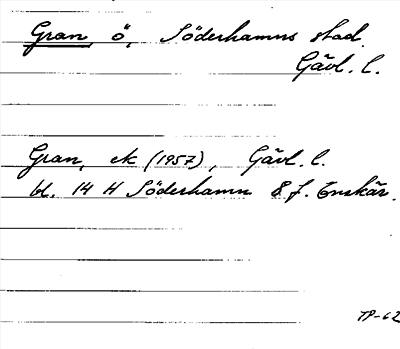 Gran, ö, Söderhamns stad.
Gävl. l.
Gran, ek (1957), Gävl. l.
bl. 14 H Söderhamn 8 f. Enskär.
TP-62